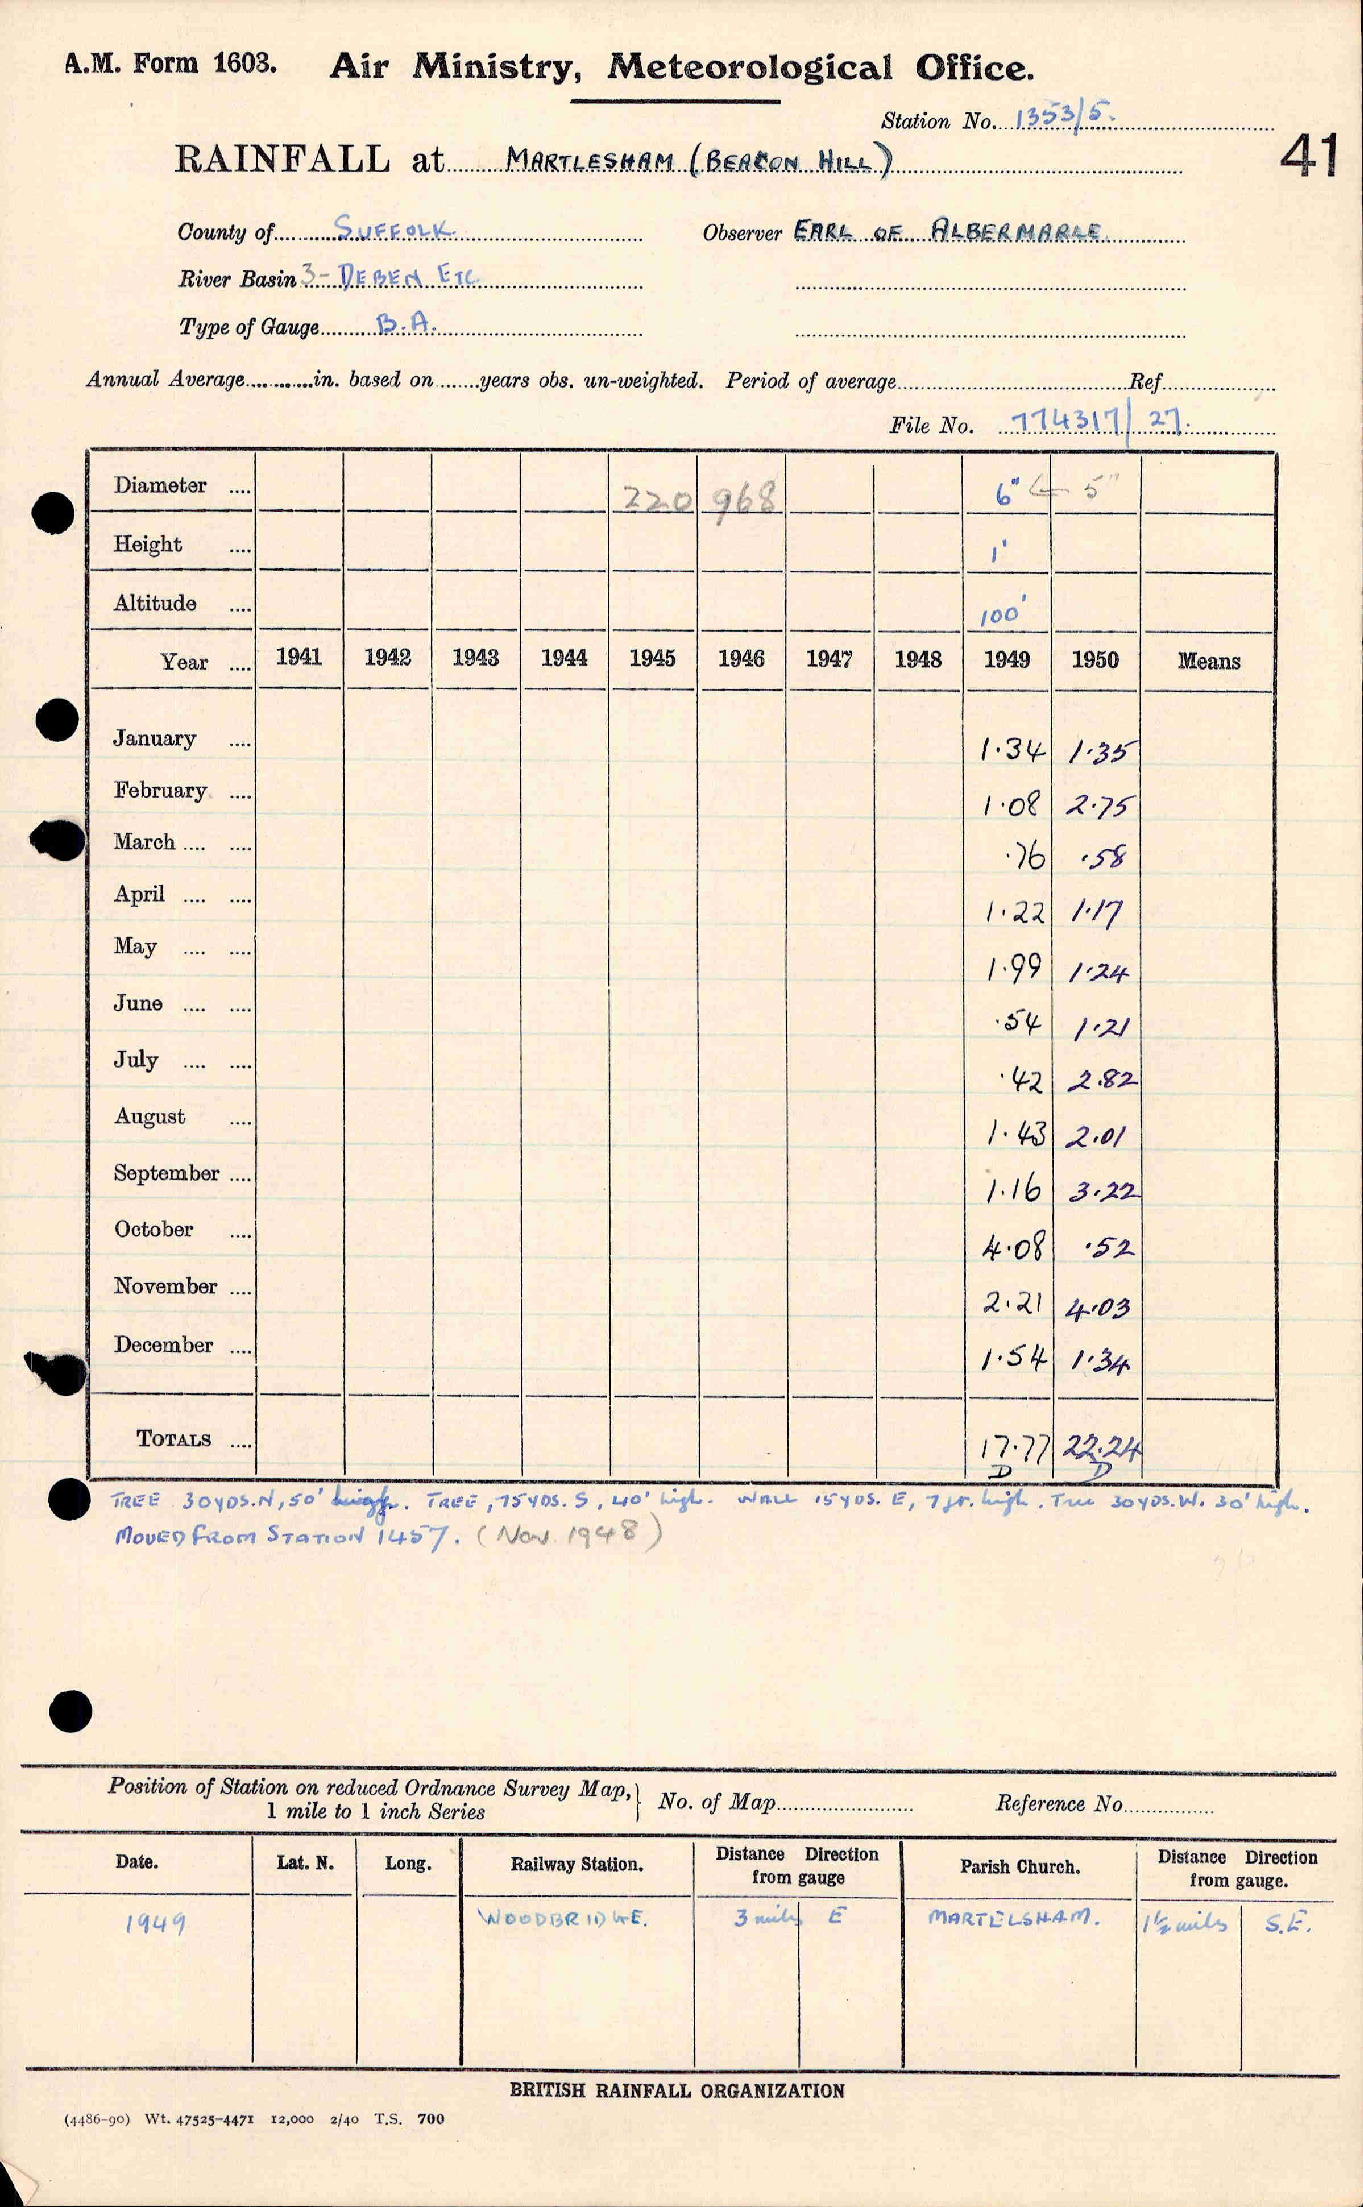 A.M. Form 1603. Air Ministry, Meteorological Office.
Station No. 1353/5.
41
RAINFALL at MARTLESHAM (BEACON HILL)
County of SUFFOLK. Observer EARL OF ALBERMARLE.
River Basin 3- DEBEN ETC.
Type of Gauge B.A.
Annual Average............in. based on .......years obs. un-weighted. Period of average.......... Ref..........
File No. 774317/27.
Diameter .... 220 968 6" ← 5"
Height .... 1'
Altitude .... 100'
Year .... 1941 1942 1943 1944 1945 1946 1947 1948 1949 1950 Means
January .... 1.34 1.35
February .... 1.08 2.75
March .... .... .76 .58
April .... .... 1.22 1.17
May .... .... 1.99 1.24
June .... .... .54 1.21
July .... .... .42 2.82
August .... 1.43 2.01
September .... 1.16 3.22
October .... 4.08 .52
November .... 2.21 4.03
December .... 1.54 1.34
TOTALS .... 17.77 22.24
D D
TREE 30YDS.N, 50' high. TREE, 75YDS. S, 40' high. WALL 15YDS. E, 7 ft. high. Tree 30YDS.W. 30' high.
MOVED FROM STATION 1457. (Nov. 1948)
Position of Station on reduced Ordnance Survey Map, } No. of Map.......... Reference No..........
1 mile to 1 inch Series
Date. Lat. N. Long. Railway Station. Distance Direction from gauge Parish Church. Distance Direction from gauge.
1949 WOODBRIDGE. 3 miles E MARTELSHAM. 1½ miles S.E.
BRITISH RAINFALL ORGANIZATION
(4486-90) Wt. 47525-4471 12,000 2/40 T.S. 700